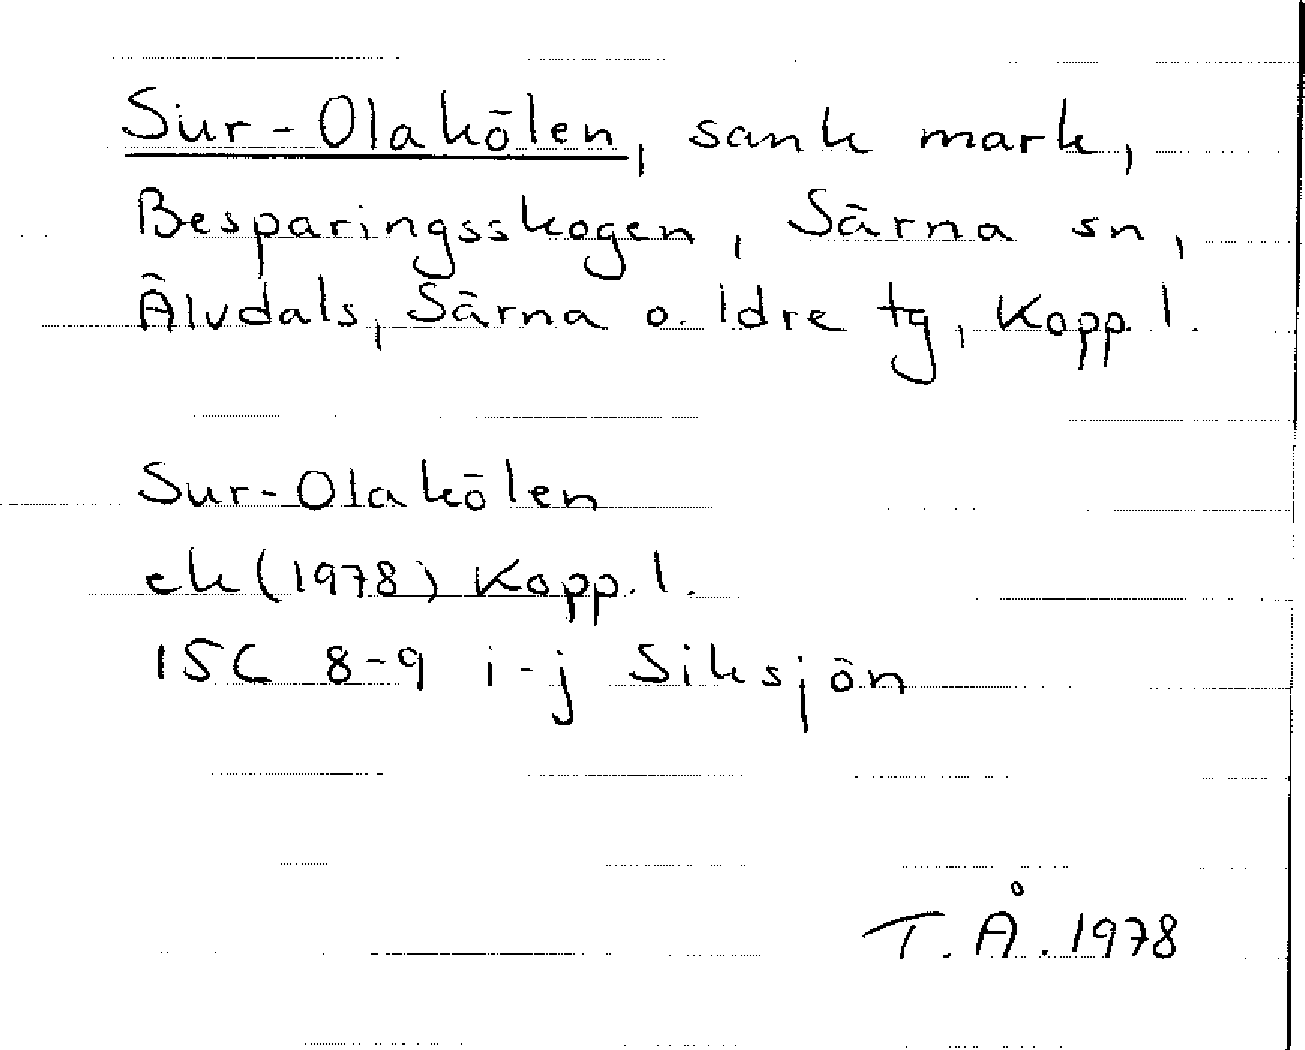 Sur-Olakölen, sank mark,
Besparingsskogen, Särna sn,
Älvdals, Särna o. Idre tg, Kopp. l.
Sur-Olakölen
ek (1978) Kopp. l.
15C 8-9 i-j Siksjön
T. Å. 1978